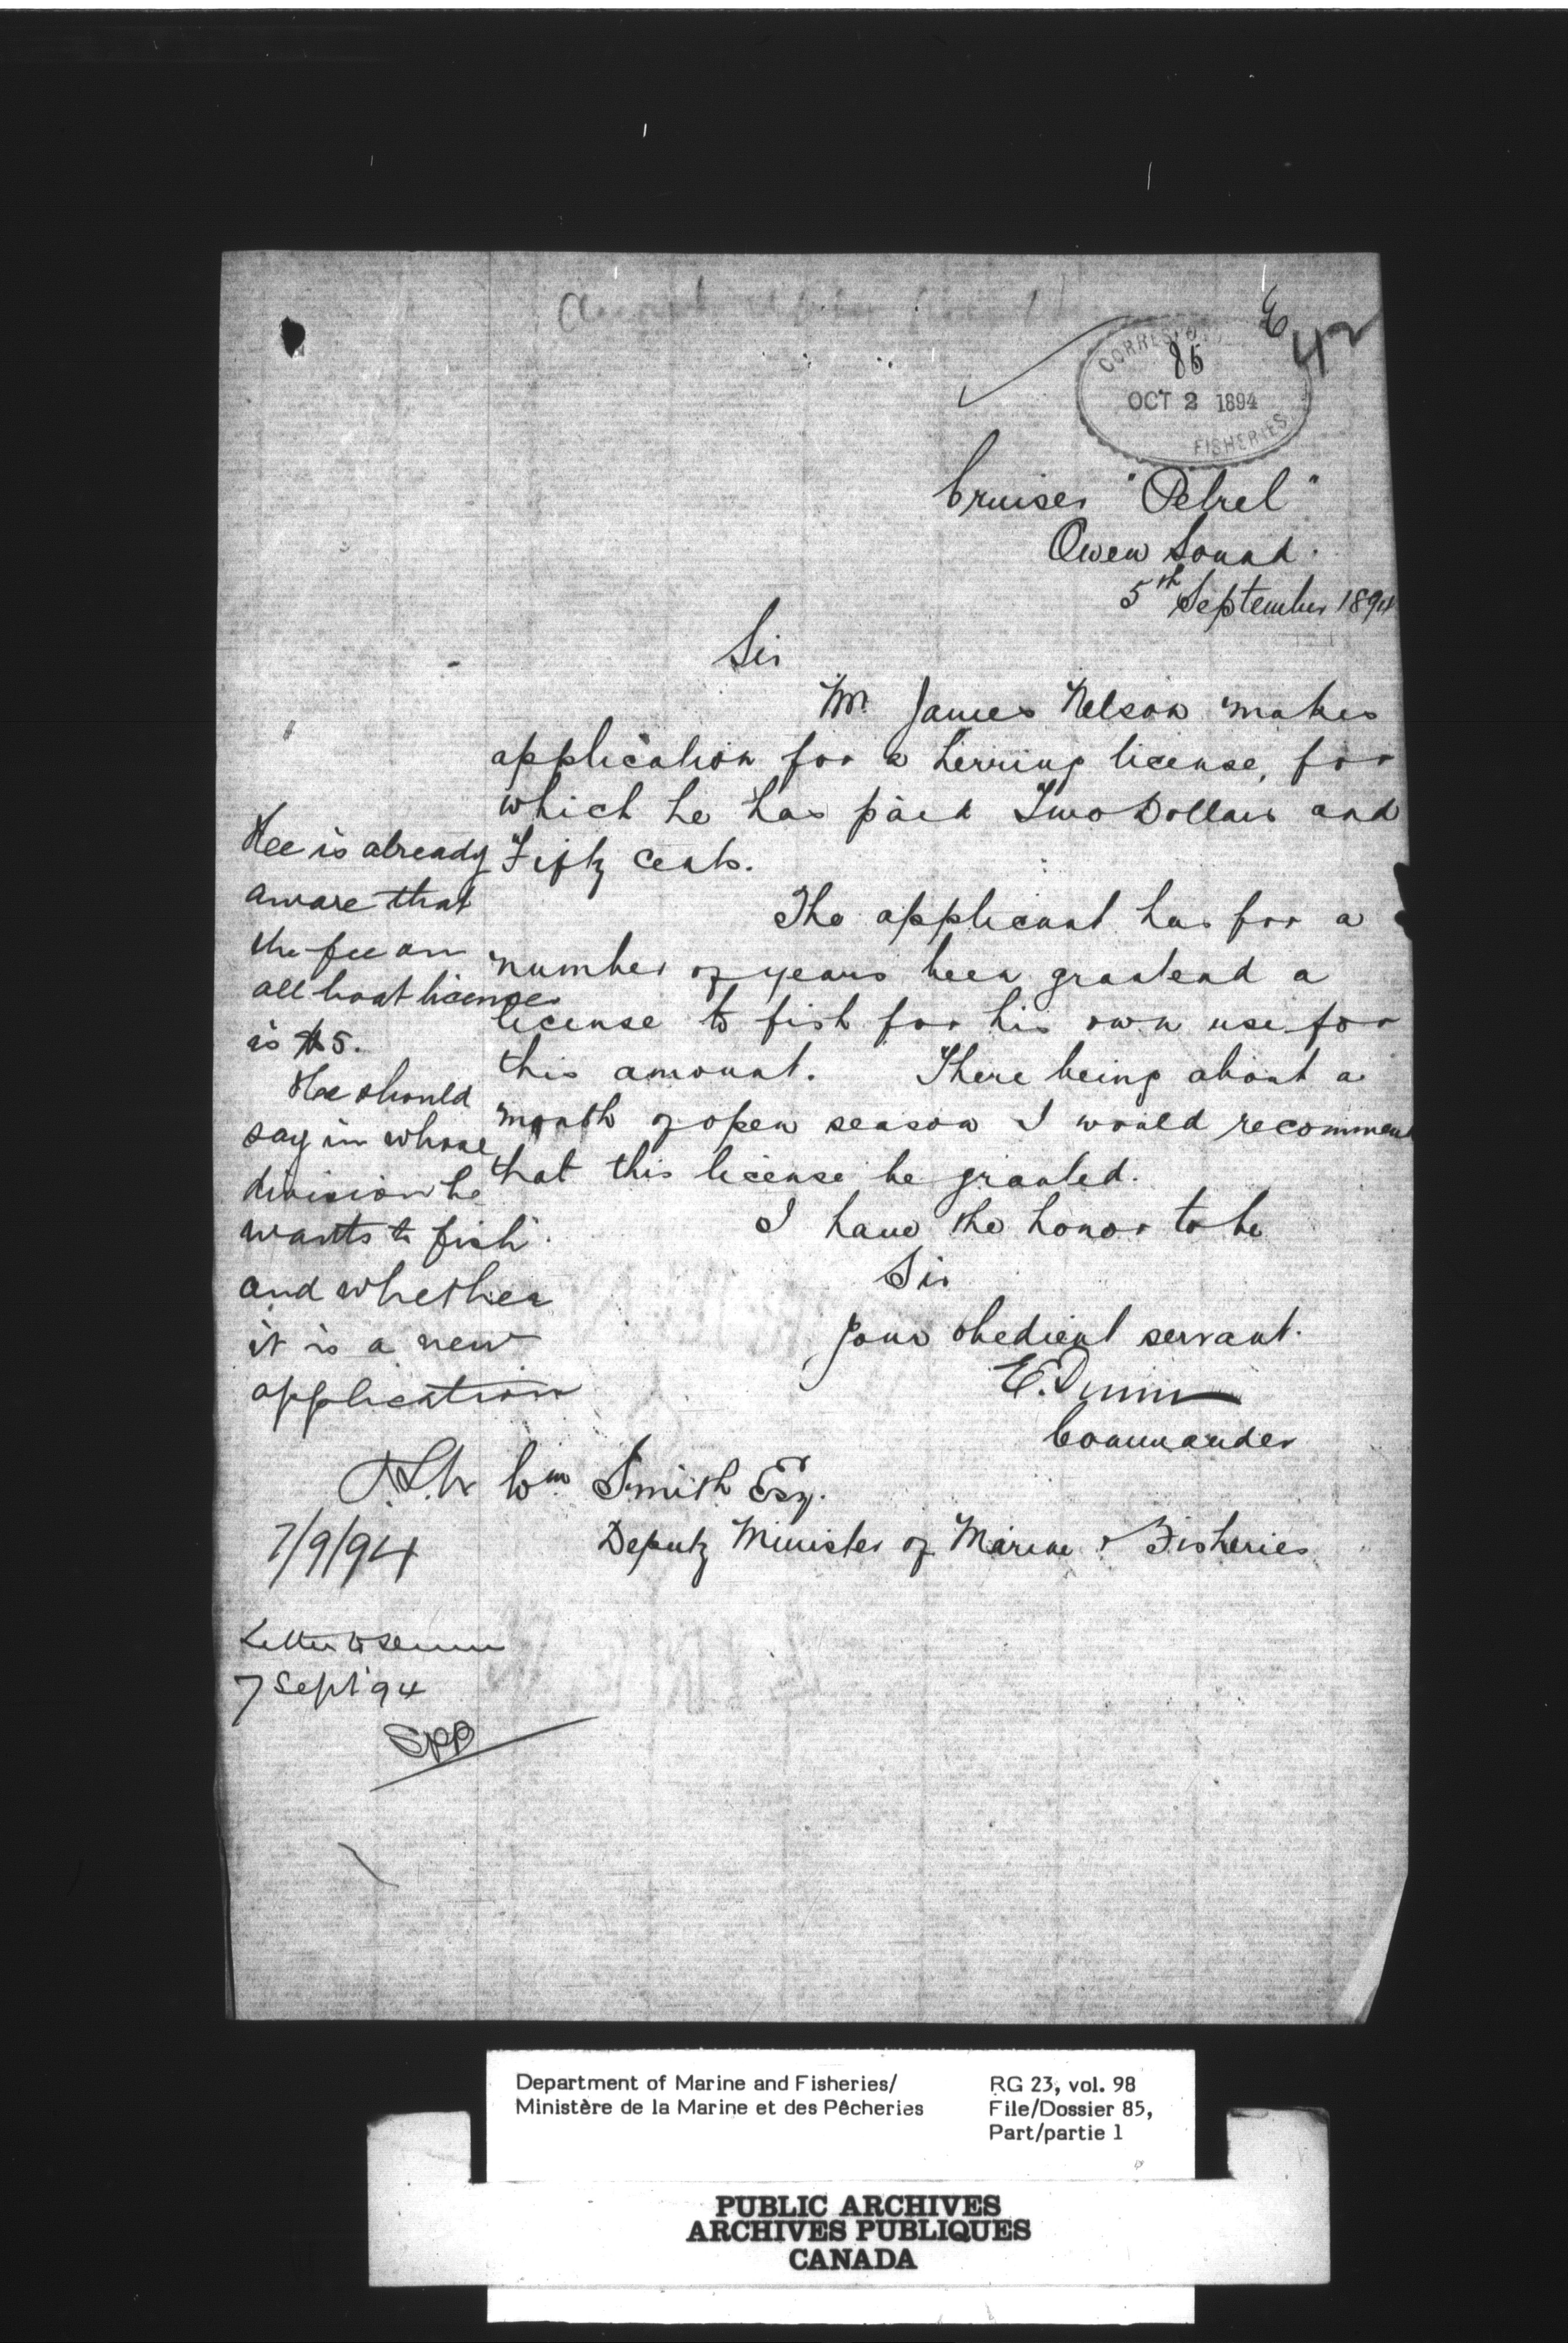 E
42
CORRES
85
OCT 2 1894
FISHERIES
Cruiser "Petrel"
Owen Sound.
5th September 1894
Sir
Mr. James Nelson makes
application for a herring license, for
which he has paid Two Dollars and
Fifty cents.
The applicant has for a
number of years been grantend a
license to fish for his own use for
this amount. There being about a
month of open season I would recommend
that this license be granted.
I have the honor to be
Sir
Your obedient servant.
E. Dunn
Commander
Wm Smith Esq.
Deputy Minister of Marine & Fisheries
Hee is already
aware that
the fee on
all boat licenses
is $5.
Hee should
say in whose
division he
wants to fish
and whether
it is a new
application
7/9/94
Letter to
7 Sept '94
Department of Marine and Fisheries/
Ministère de la Marine et des Pêcheries
RG 23, vol. 98
File/Dossier 85,
Part/partie 1
PUBLIC ARCHIVES
ARCHIVES PUBLIQUES
CANADA